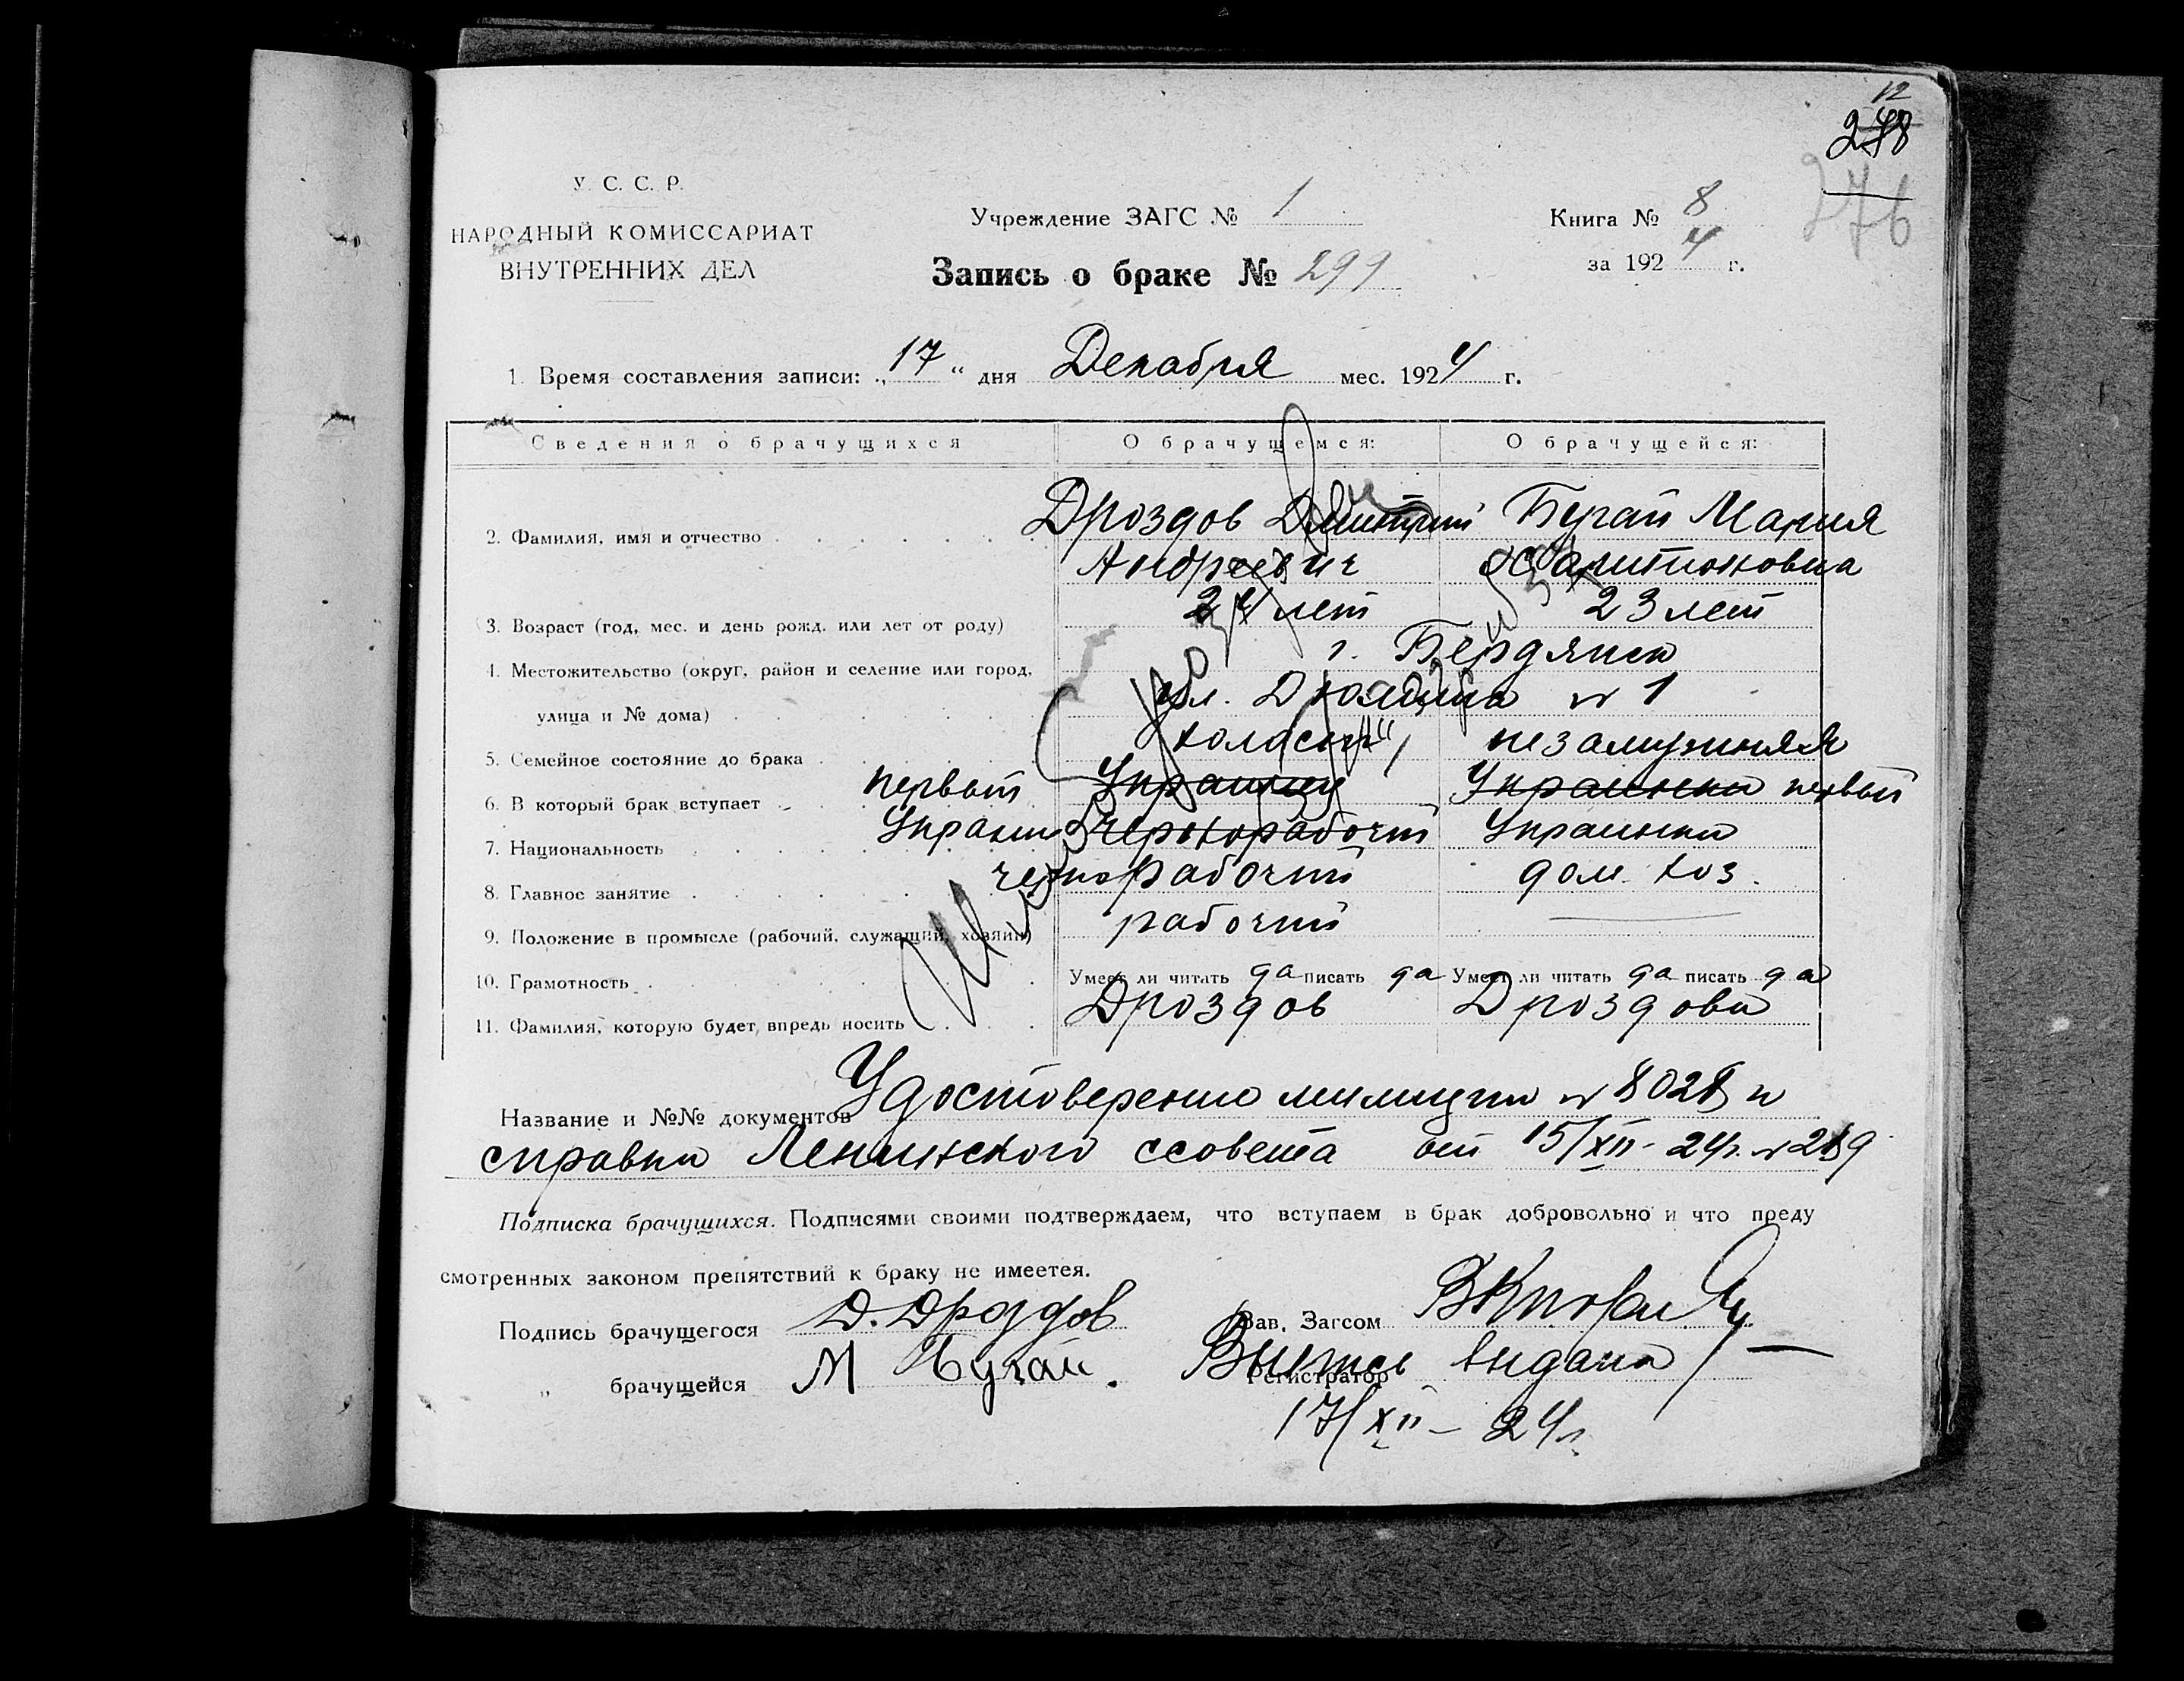 12
278
276
У. С. С. Р.
НАРОДНЫЙ КОМИССАРИАТ
ВНУТРЕННИХ ДЕЛ
Учреждение ЗАГС № 1
Книга № 8
за 192 4 г.
Запись о браке № 299
1. Время составления записи: „17“ дня Декабря мес. 1924 г.
Сведения о брачущихся О брачущемся: О брачущейся:
2. Фамилия, имя и отчество Дроздов Дмитрий Бугай Мария
Андреевич Харитоновна
3. Возраст (год, мес. и день рожд. или лет от роду) 24 лет 23 лет
4. Местожительство (округ, район и селение или город, г. Бердянск
улица и № дома) ул. № 1
5. Семейное состояние до брака холост незамужняя
6. В который брак вступает первый Украинец Украинка первый
7. Национальность Украин чернорабочий Украинка
8. Главное занятие чернорабочий дом. хоз.
9. Положение в промысле (рабочий, служащий, хозяин) рабочий
10. Грамотность Умеет ли читать да писать да Умеет ли читать да писать да
11. Фамилия, которую будет впредь носить Дроздов Дроздова
Название и №№ документов Удостоверение милиции № 8028 и
справки Ленинского ссовета от 15/XII-24г. № 219
Подписка брачущихся. Подписями своими подтверждаем, что вступаем в брак добровольно и что преду
смотренных законом препятствий к браку не имеетея.
Подпись брачущегося Д. Дроздов Зав. Загсом
„ брачущейся М Бугай. Регистратор Выпись выдана
17/XII-24г.